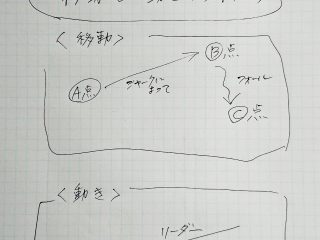 〈移動〉
Ⓑ点
Ⓐ点
ジャークに
よって
フォール
Ⓒ点
〈動き〉
リーダー